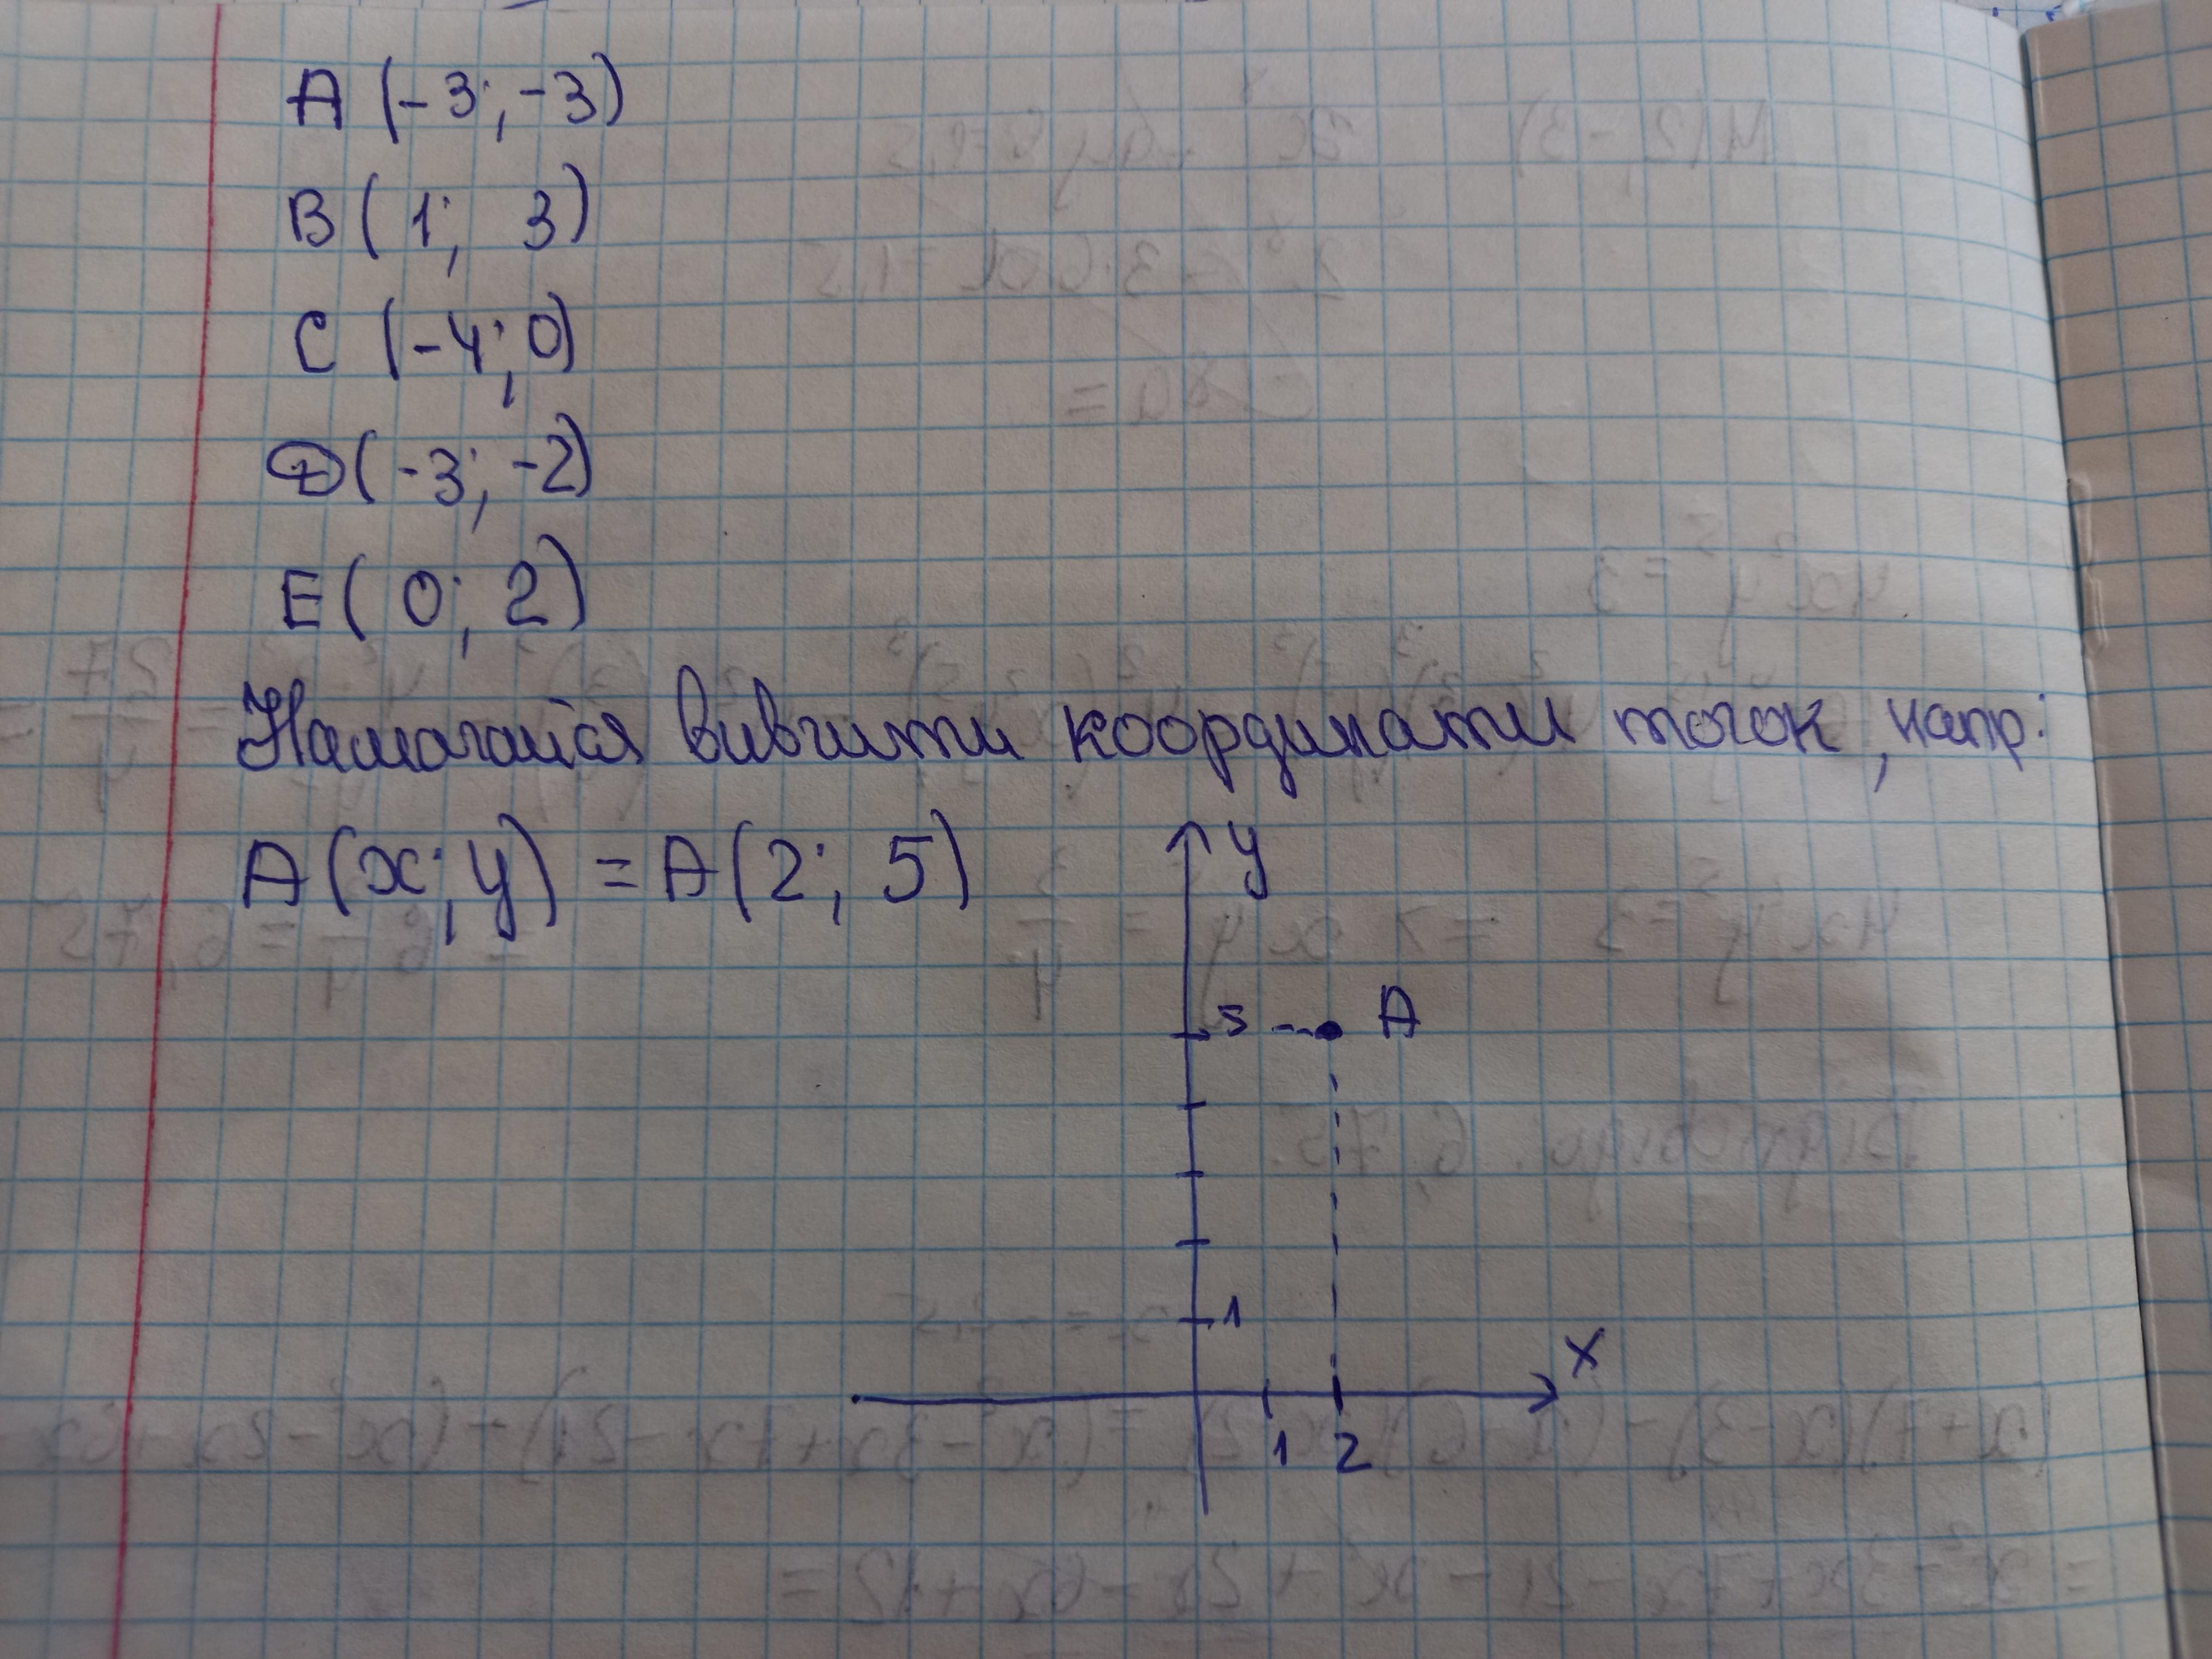 A (-3; -3)
B ( 1; 3)
C (-4; 0)
D (-3; -2)
E ( 0; 2)
Намагайся вивчити координати точок, напр:
A (x; y) = A (2; 5)
y
5 A
1
x
1 2